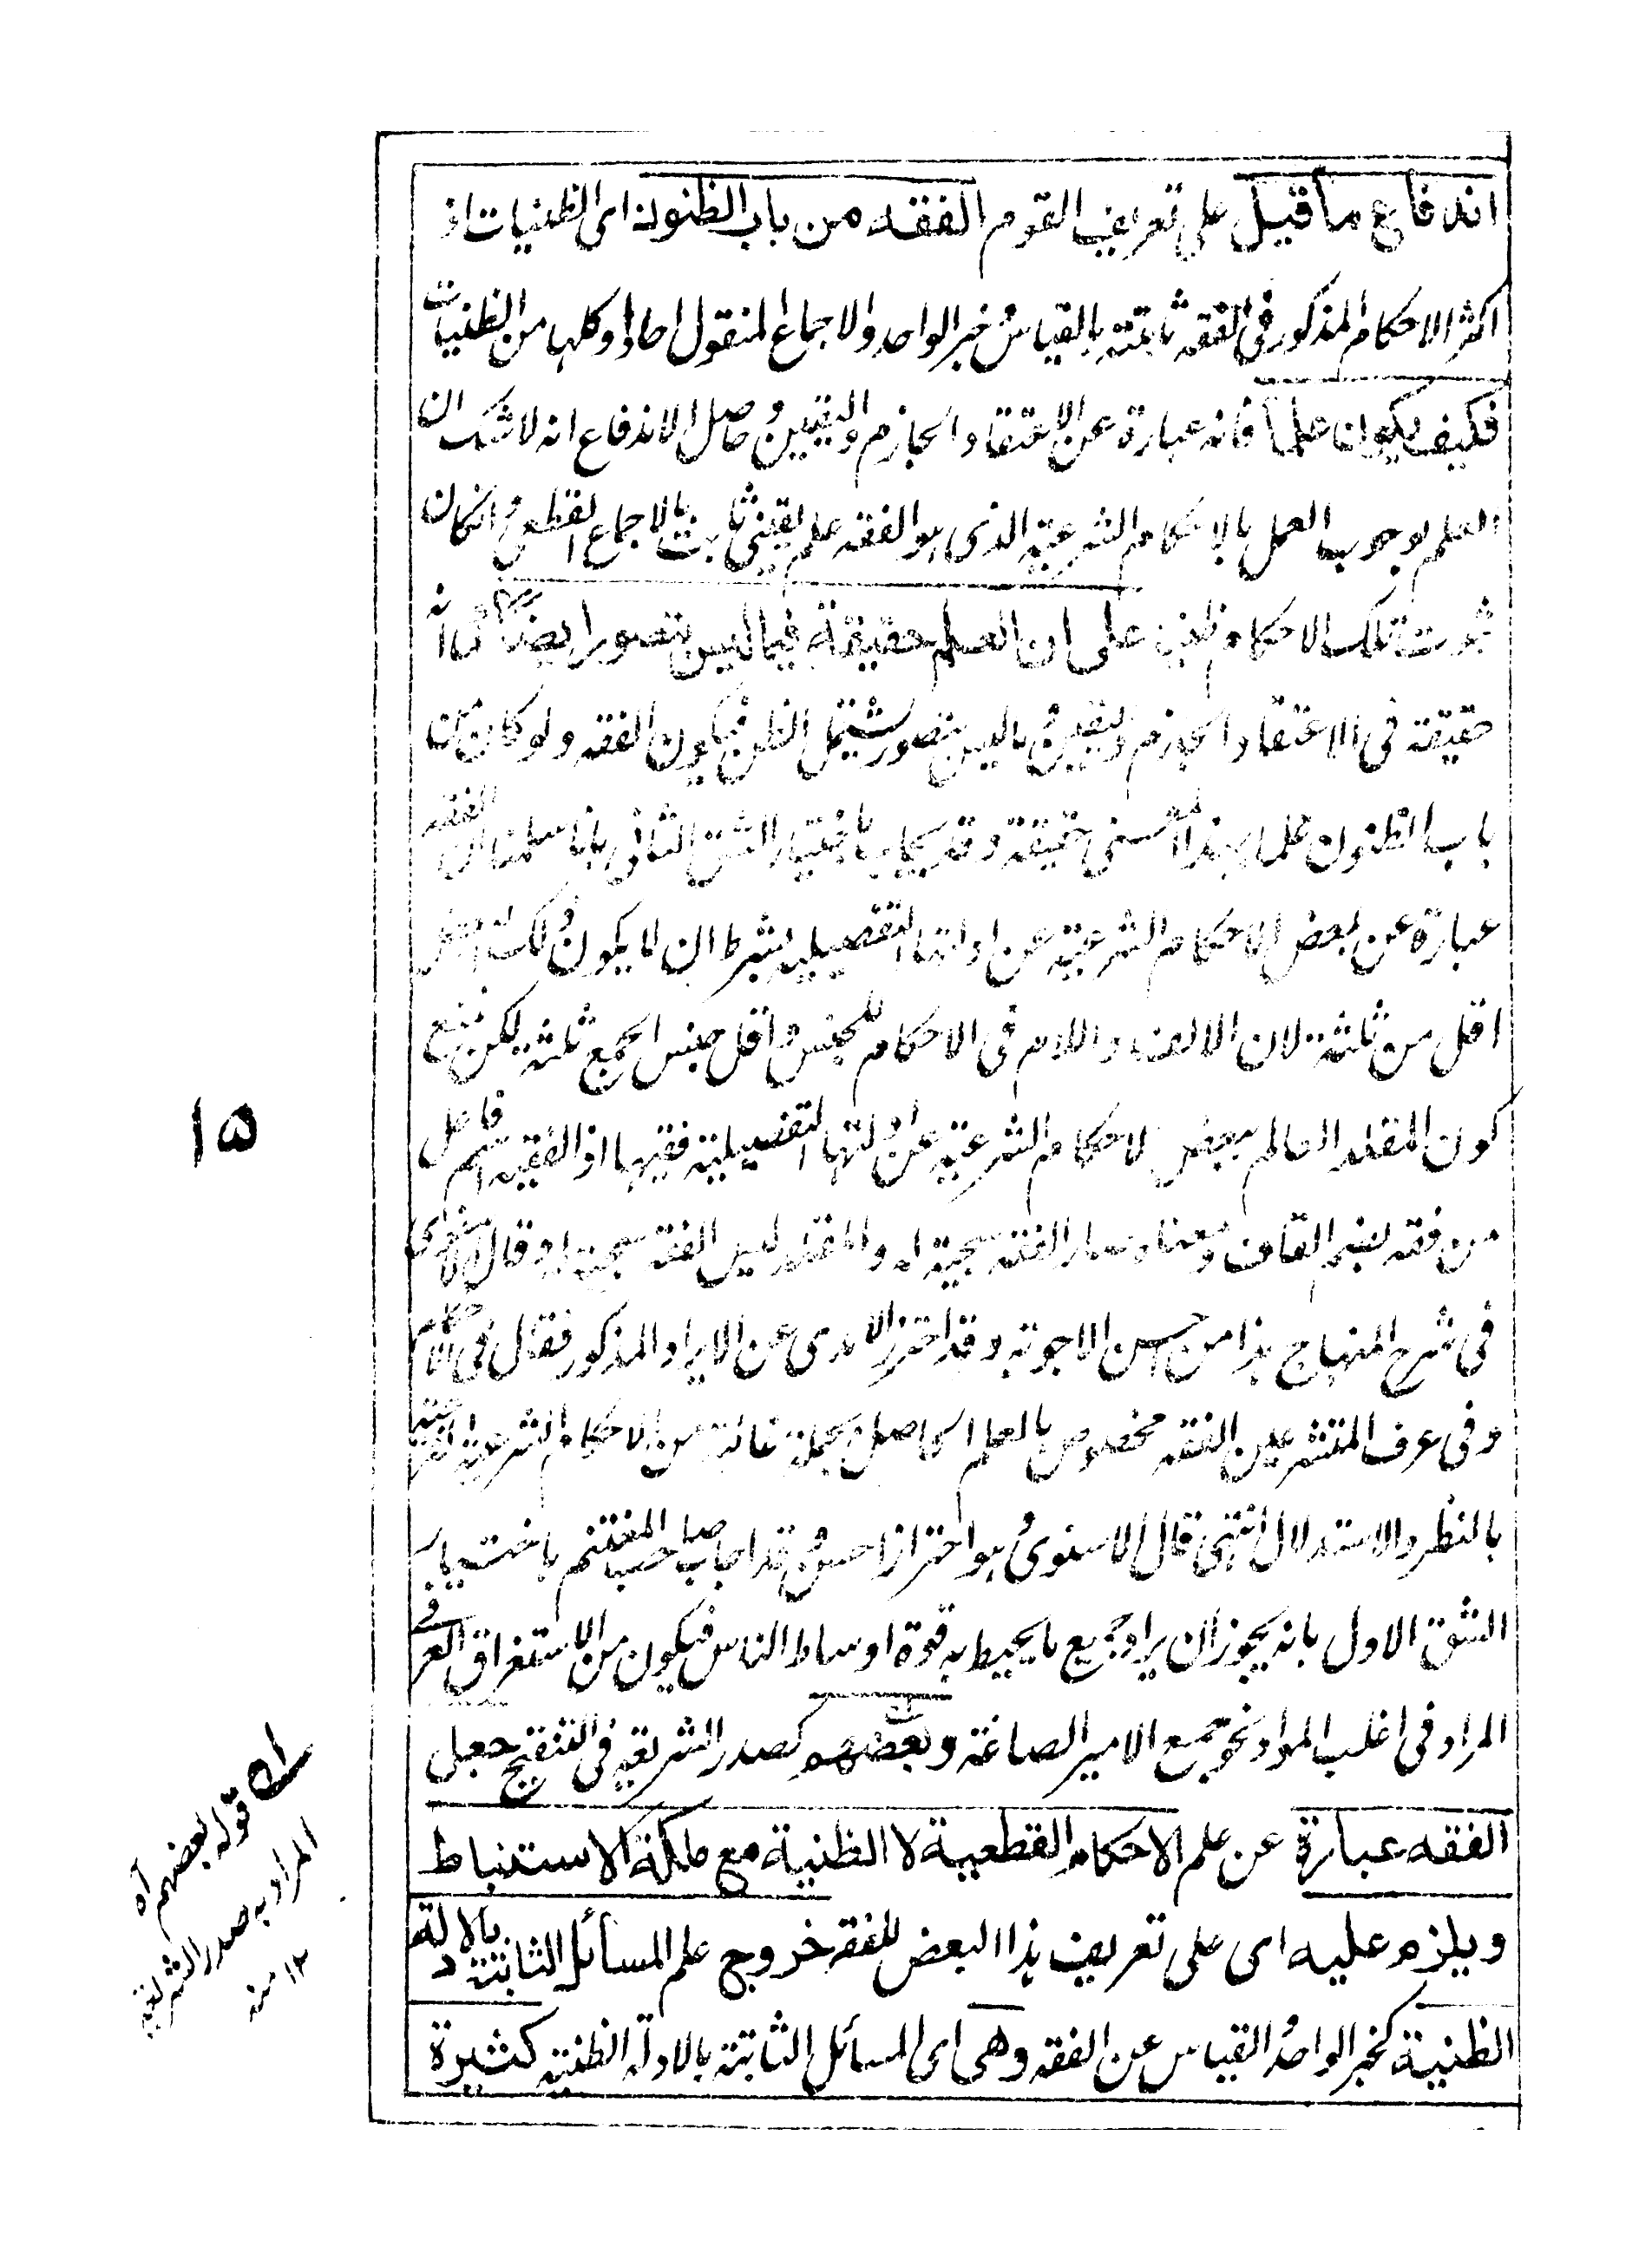 اندفاع ما قيل على تعريف القوم الفقه من باب الظنون اى الظنيات اذ
اكثر الاحكام المذكور فى الفقه ثابتة بالقياس وخبر الواحد والاجماع المنقول احادا وكلها من الظنيات
فكيف يكون علما فانه عبارة عن الاعتقاد الجازم واليقين وحاصل الاندفاع انه لا شك ان
العلم بوجوب العمل بالاحكام الشرعية الذى هو الفقه علم يقينى ثابت بالاجماع القطعى وان كان
ثبوت تلك الاحكام ظنيا على ان العلم حقيقة فيما ليس بتصور ايضا كما انه
حقيقة فى الاعتقاد الجازم واليقين وما ليس بتصور يشتمل الظن فيكون الفقه ولو كان من
باب الظنون علما بهذا المعنى حقيقة وقد يجاب باختيار الشق الثانى بانا سلمنا ان الفقه
عبارة عن بعض الاحكام الشرعية عن ادلتها التفصيلية بشرط ان لا يكون ذلك البعض
اقل من ثلثة لان الالف واللام فى الاحكام للجنس واقل جنس الجمع ثلثة لكن نمنع
كون المقلد العالم ببعض الاحكام الشرعية عن ادلتها التفصيلية فقيها اذ الفقيه اسم فاعل
من فقه بضم القاف ومعناه صار الفقه سجية له والمقلد ليس الفقه سجية له وقال الاسنوى
فى شرح المنهاج هذا من احسن الاجوبة وقد احترز الآمدى عن الايراد المذكور فقال فى الاحكام
وفى عرف المتشرعين الفقه مخصوص بالعلم الحاصل بجملة غالبة من الاحكام الشرعية الفرعية
بالنظر والاستدلال انتهى قال الاسنوى وهو احتراز احسن وقد اجاب صاحب المغتنم باختيار
الشق الاول بانه يجوز ان يراد جميع ما يحيط به قوة اوساط الناس فيكون من الاستغراق العرفى
المراد فى اغلب المواد نحو جمع الامير الصاغة وبعضهم كصدر الشريعة فى التنقيح جعل
الفقه عبارة عن علم الاحكام القطعية لا الظنية مع ملكة الاستنباط
ويلزم عليه اى على تعريف هذا البعض للفقه خروج علم المسائل الثابتة بالادلة
الظنية كخبر الواحد والقياس عن الفقه وهى اى المسائل الثابتة بالادلة الظنية كثيرة
١٥
قوله بعضهم آه
المراد به صدر الشريعة
١٢ منه